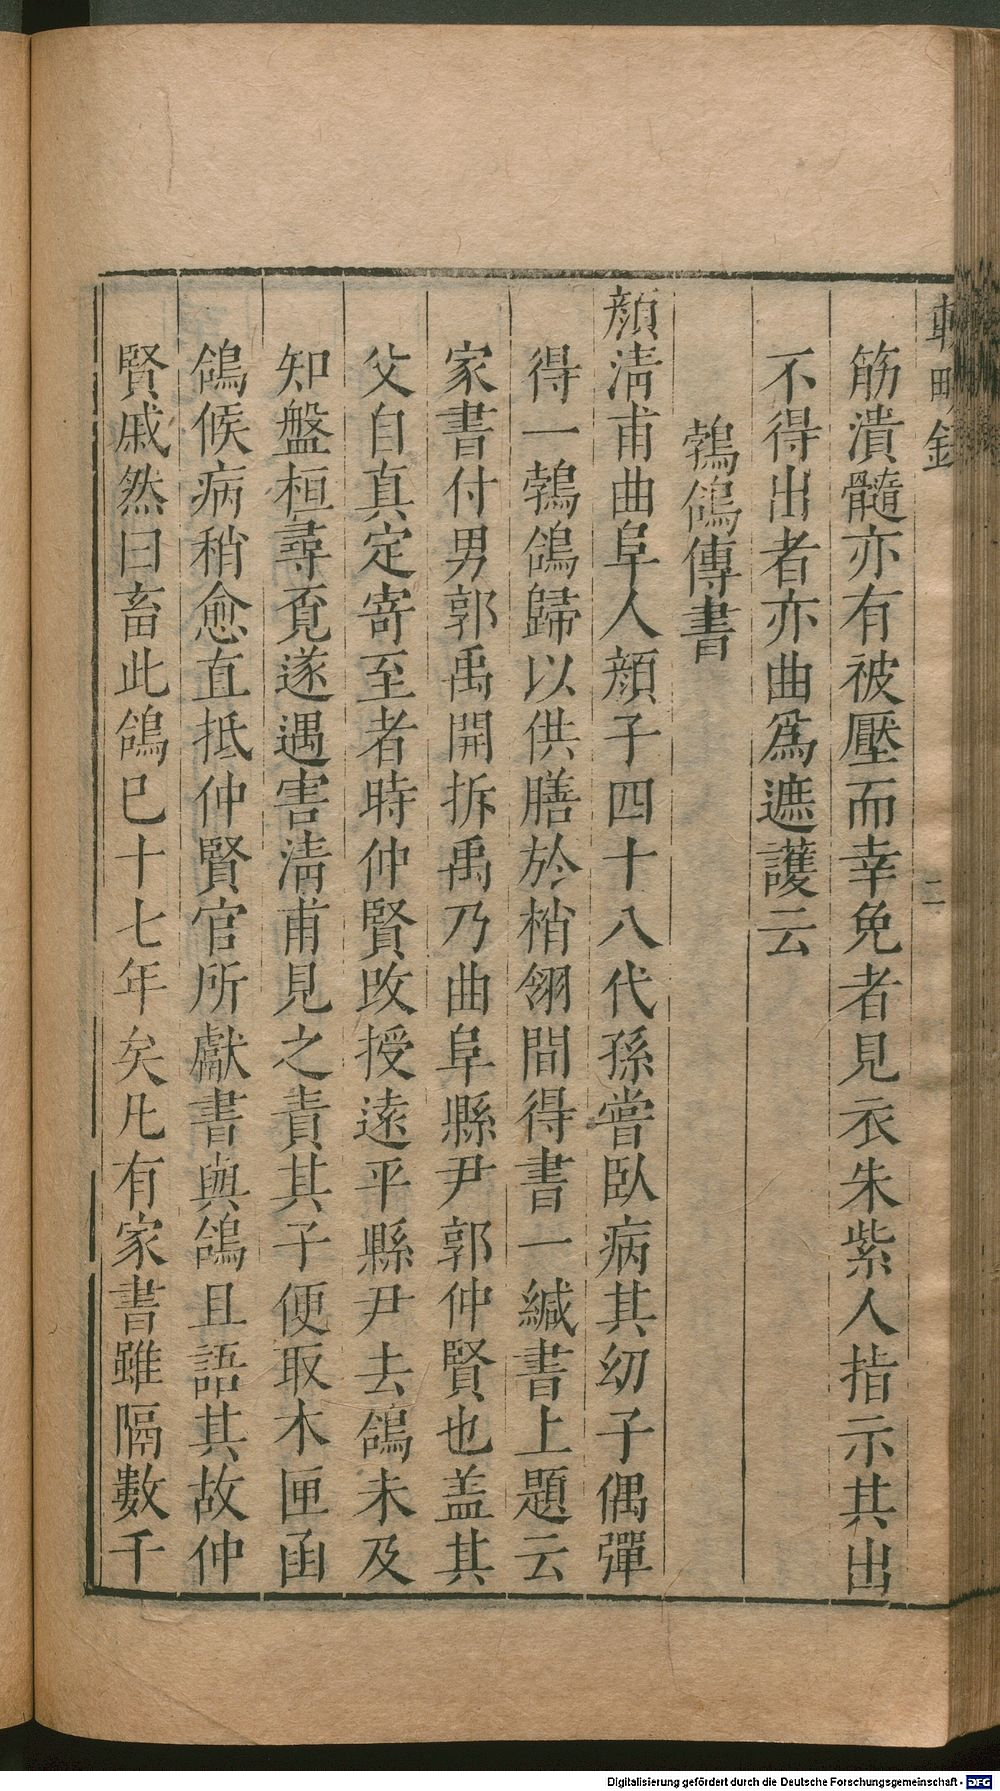 輟畊錄
二
筋潰髓亦有被壓而幸免者見衣朱紫人指示其出
不得出者亦曲爲遮護云
鵓鴿傳書
顔淸甫曲阜人顔子四十八代孫嘗臥病其幼子偶彈
得一鵓鴿歸以供膳於梢翎間得書一緘書上題云
家書付男郭禹開拆禹乃曲阜縣尹郭仲賢也盖其
父自真定寄至者時仲賢改授遠平縣尹去鴿未及
知盤桓尋覓遂遇害淸甫見之責其子便取木匣函
鴿候病稍愈直抵仲賢官所獻書與鴿且語其故仲
賢戚然曰畜此鴿已十七年矣凡有家書雖隔數千
Digitalisierung gefördert durch die Deutsche Forschungsgemeinschaft - DFG